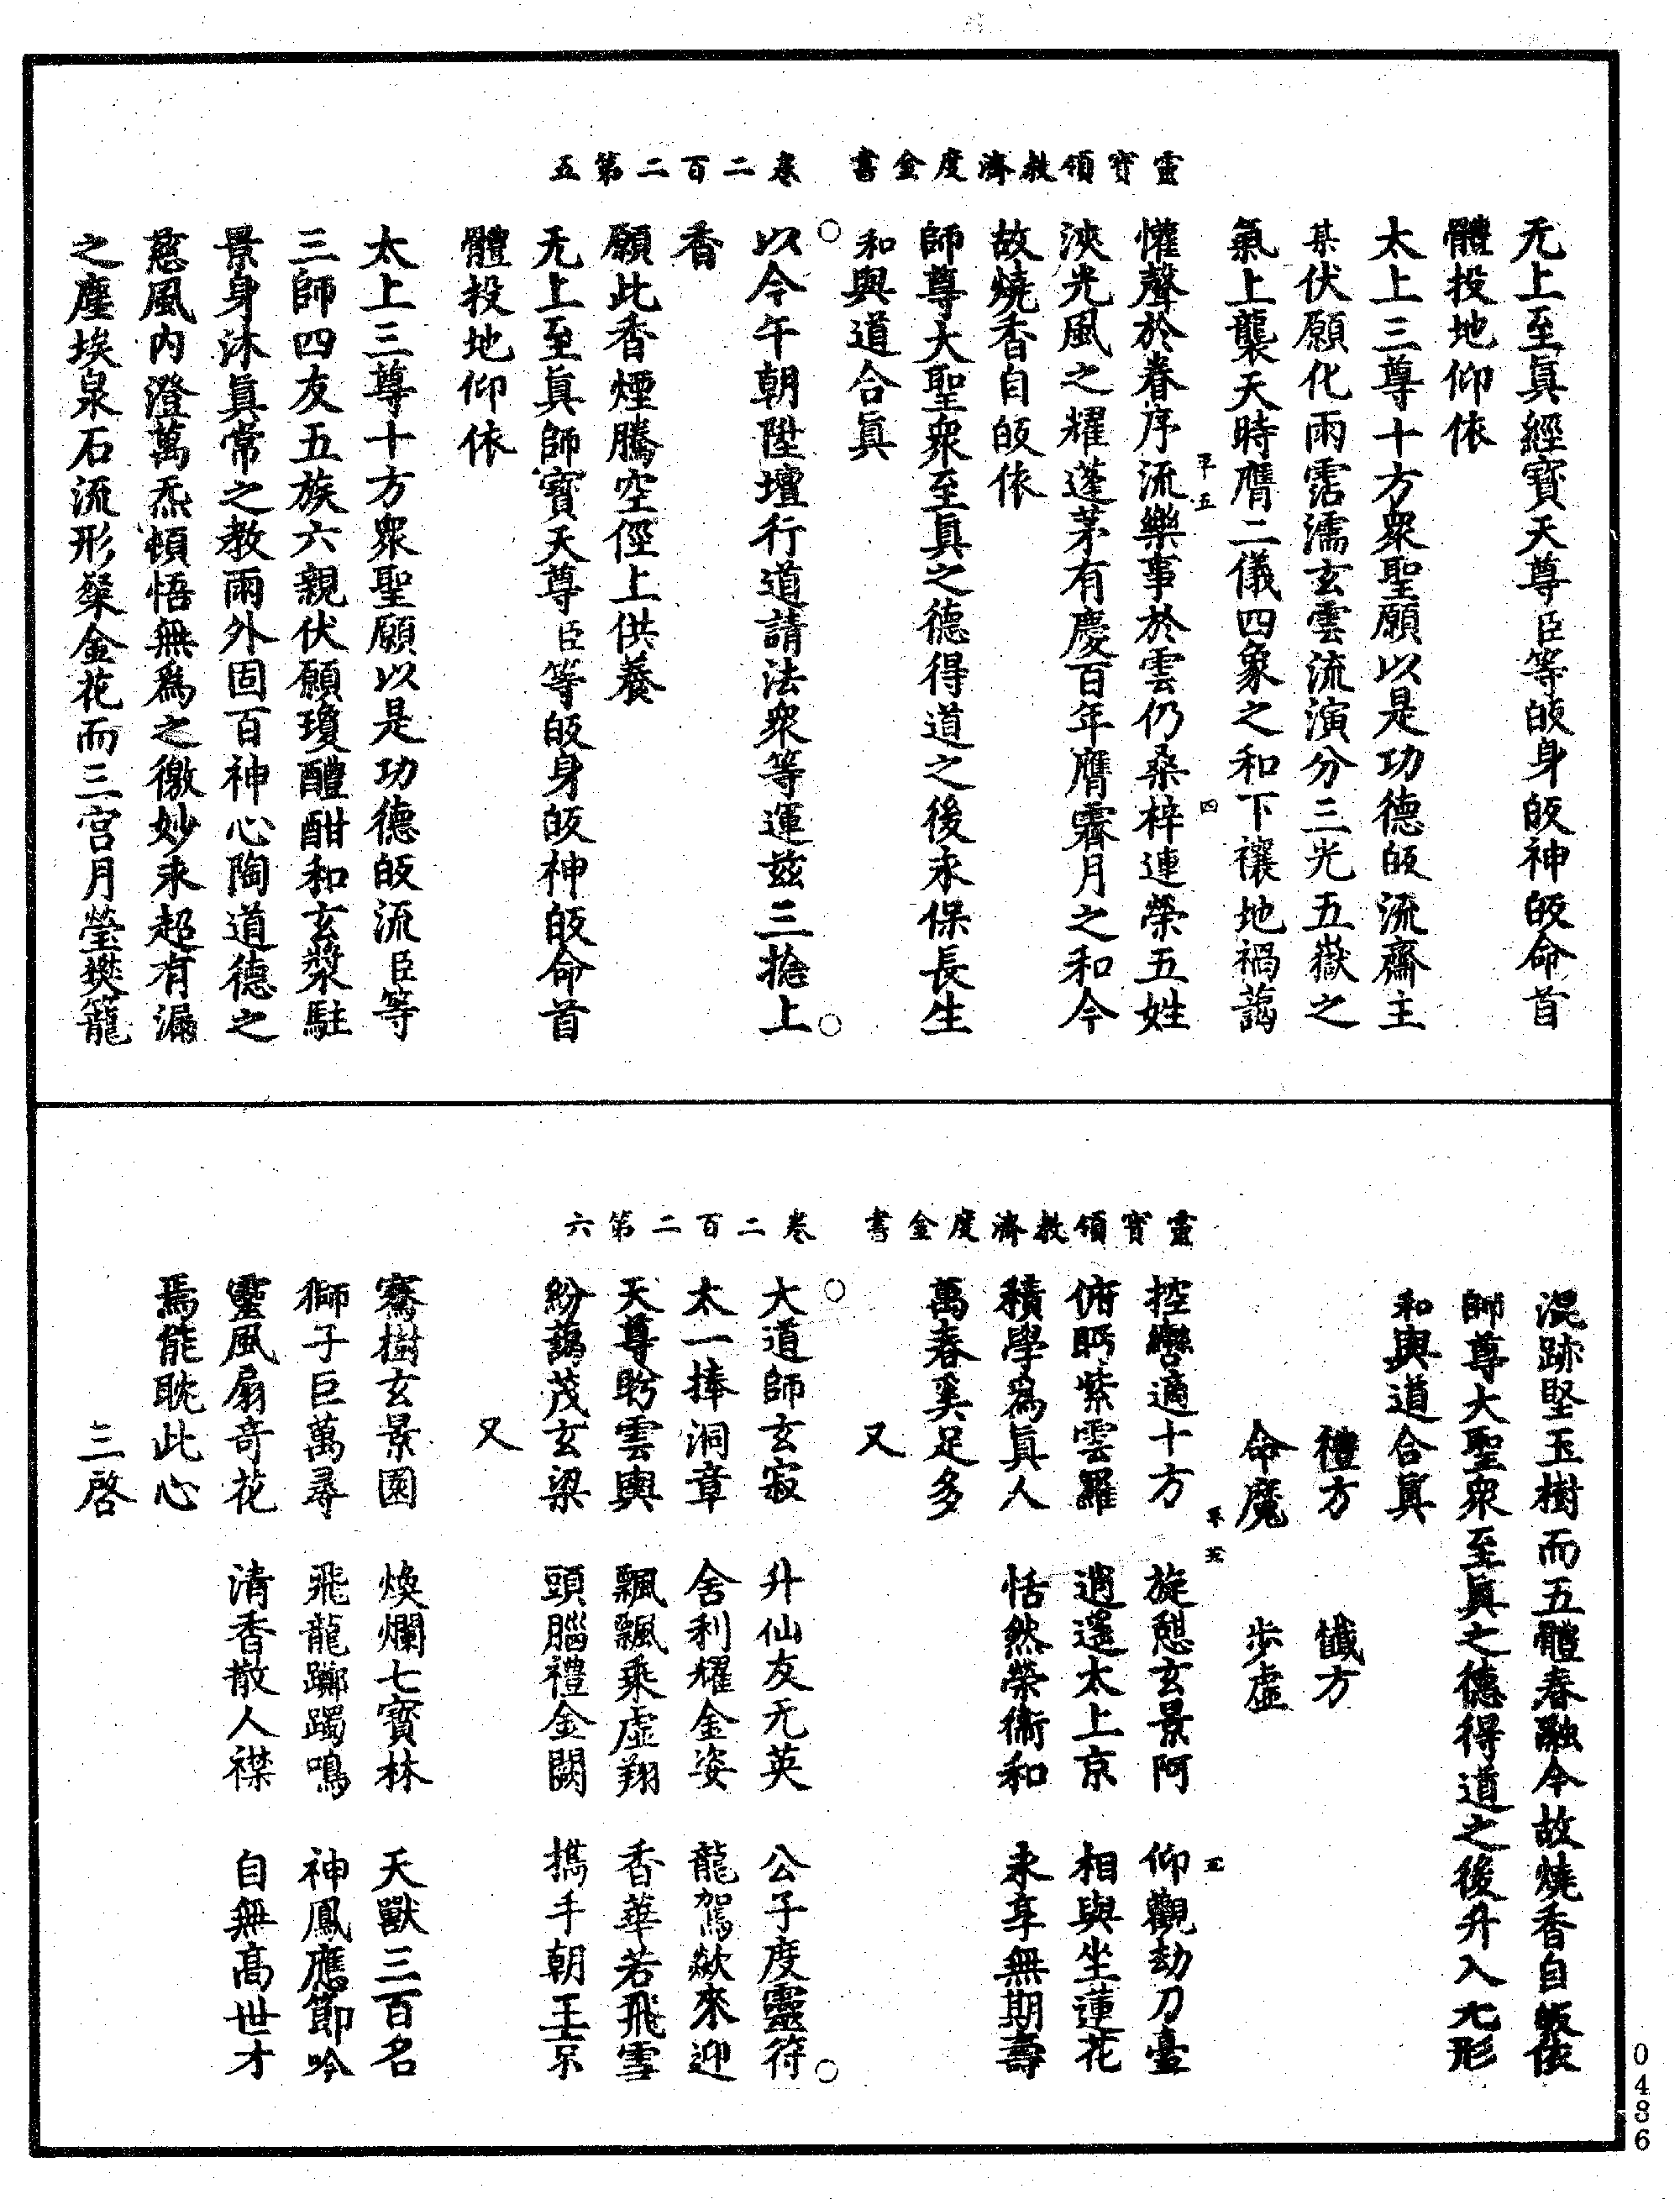 靈寶領教濟度金書　卷二百二第五
无上至眞經寶天尊臣等皈身皈神皈命首
體投地仰依
太上三尊十方衆聖願以是功德皈流齋主
某伏願化雨霑濡玄雲流演分三光五嶽之
氣上襲天時膺二儀四象之和下禳地禍藹
懽聲於眷序流樂事於雲仍桑梓連榮五姓
浹光風之耀蓬茅有慶百年膺霽月之和今
故燒香自皈依
師尊大聖衆至眞之德得道之後永保長生
和與道合眞
以今午朝陞壇行道請法衆等運茲三捻上
香
願此香煙騰空徑上供養
无上至眞師寶天尊臣等皈身皈神皈命首
體投地仰依
太上三尊十方衆聖願以是功德皈流臣等
三師四友五族六親伏願瓊醴酣和玄漿駐
景身沐眞常之教雨外固百神心陶道德之
慈風內澄萬炁頓悟無爲之徼妙永超有漏
之塵埃泉石流形粲金花而三宮月瑩樊籠
靈寶領教濟度金書　卷二百二第六
混跡堅玉樹而五體春融今故燒香自皈依
師尊大聖衆至眞之德得道之後升入无形
和與道合眞
禮方　懺方
命魔　步虛
控轡適十方　旋憩玄景阿　仰觀劫刀臺
俯眄紫雲羅　逍遙太上京　相與坐蓮花
積學爲眞人　恬然榮衛和　永享無期壽
萬春奚足多
又
大道師玄寂　升仙友无英　公子度靈符
太一捧洞章　舍利耀金姿　龍駕欻來迎
天尊盻雲輿　飄飄乘虛翔　香華若飛雪
紛藹茂玄梁　頭腦禮金闕　攜手朝玉京
又
騫樹玄景園　煥爛七寶林　天獸三百名
獅子巨萬尋　飛龍躑躅鳴　神鳳應節吟
靈風扇奇花　清香散人襟　自無高世才
焉能耽此心
三啓
0486